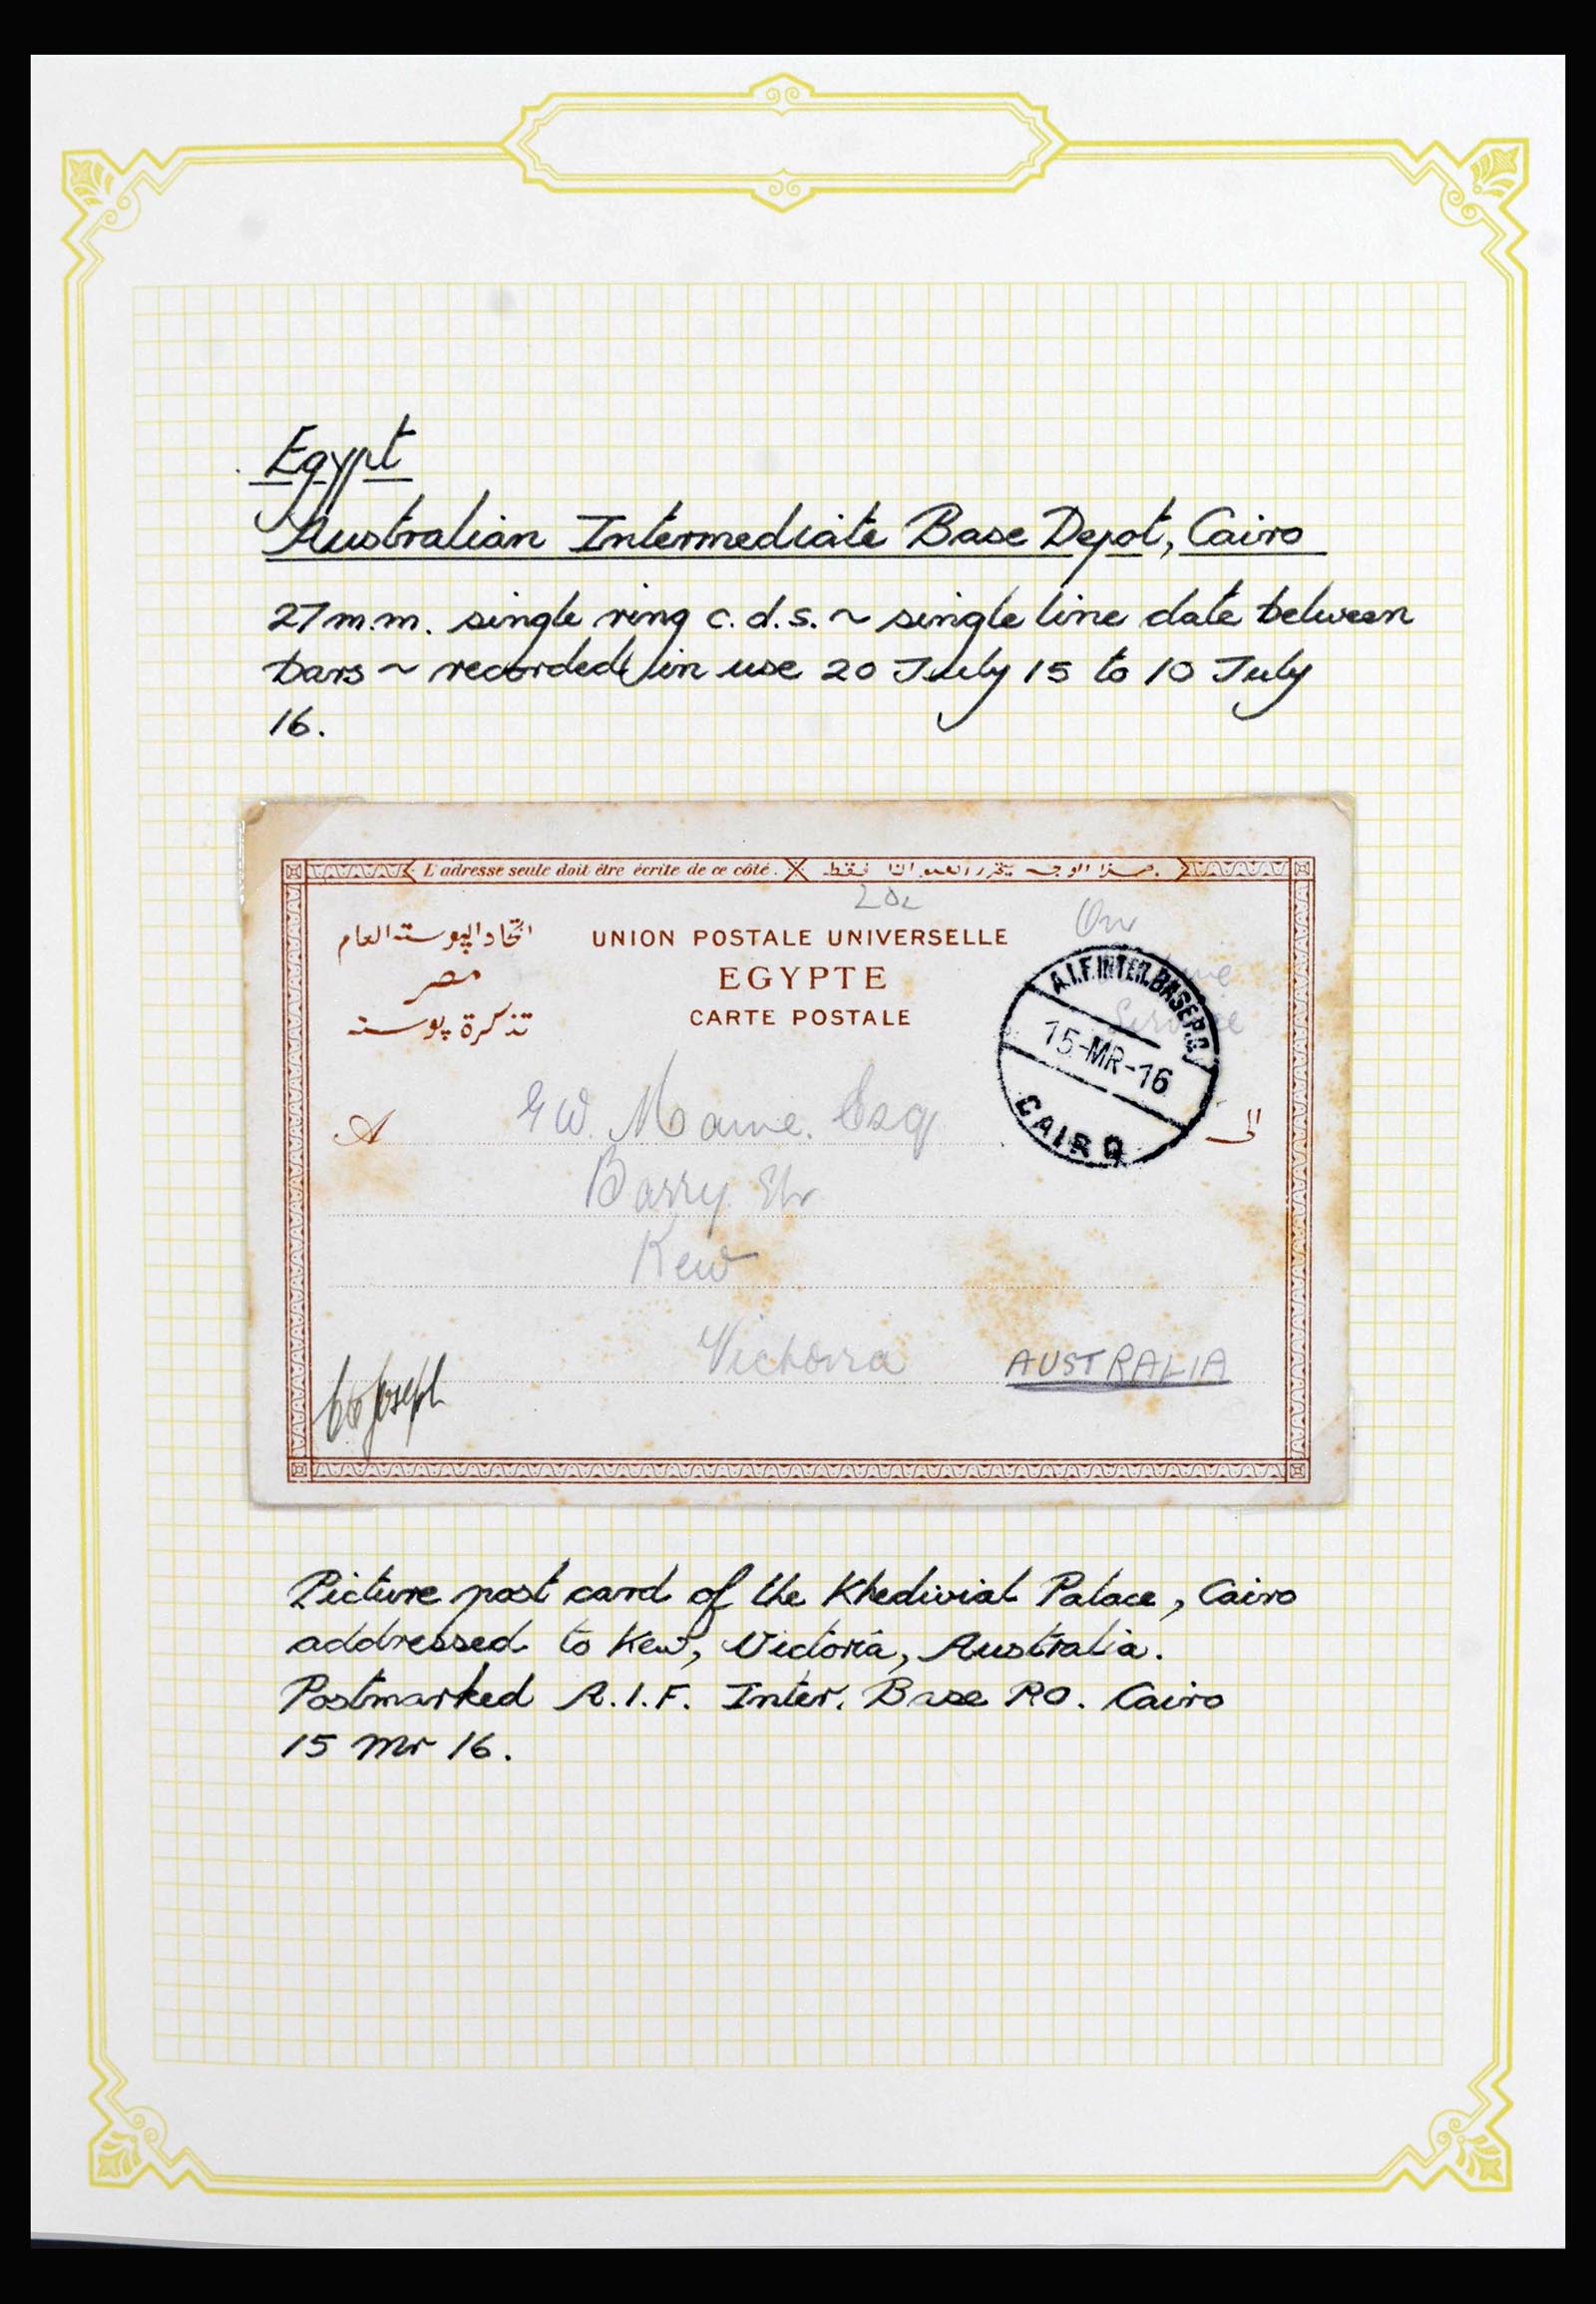 Egypt
Australian Intermediate Base Depot, Cairo
27 m.m. single ring c.d.s. ~ single line date between
bars ~ recorded in use 20 July 15 to 10 July
16.
L'adresse seule doit être écrite de ce côté. هـذا الوجـه يحرر العنوان فقط.
On
اتحاد البوستة العام
UNION POSTALE UNIVERSELLE
مصر
EGYPTE
تذكرة بوستة
CARTE POSTALE
Service
A.I.F. INTER. BASE P.O.
15-MR-16
CAIRO
A
الى
G W. Esq
Barry Str
Kew
Victoria AUSTRALIA
Joseph
Picture post card of the Khedivial Palace, Cairo
addressed to Kew, Victoria, Australia.
Postmarked A.I.F. Inter. Base P.O. Cairo
15 Mr 16.